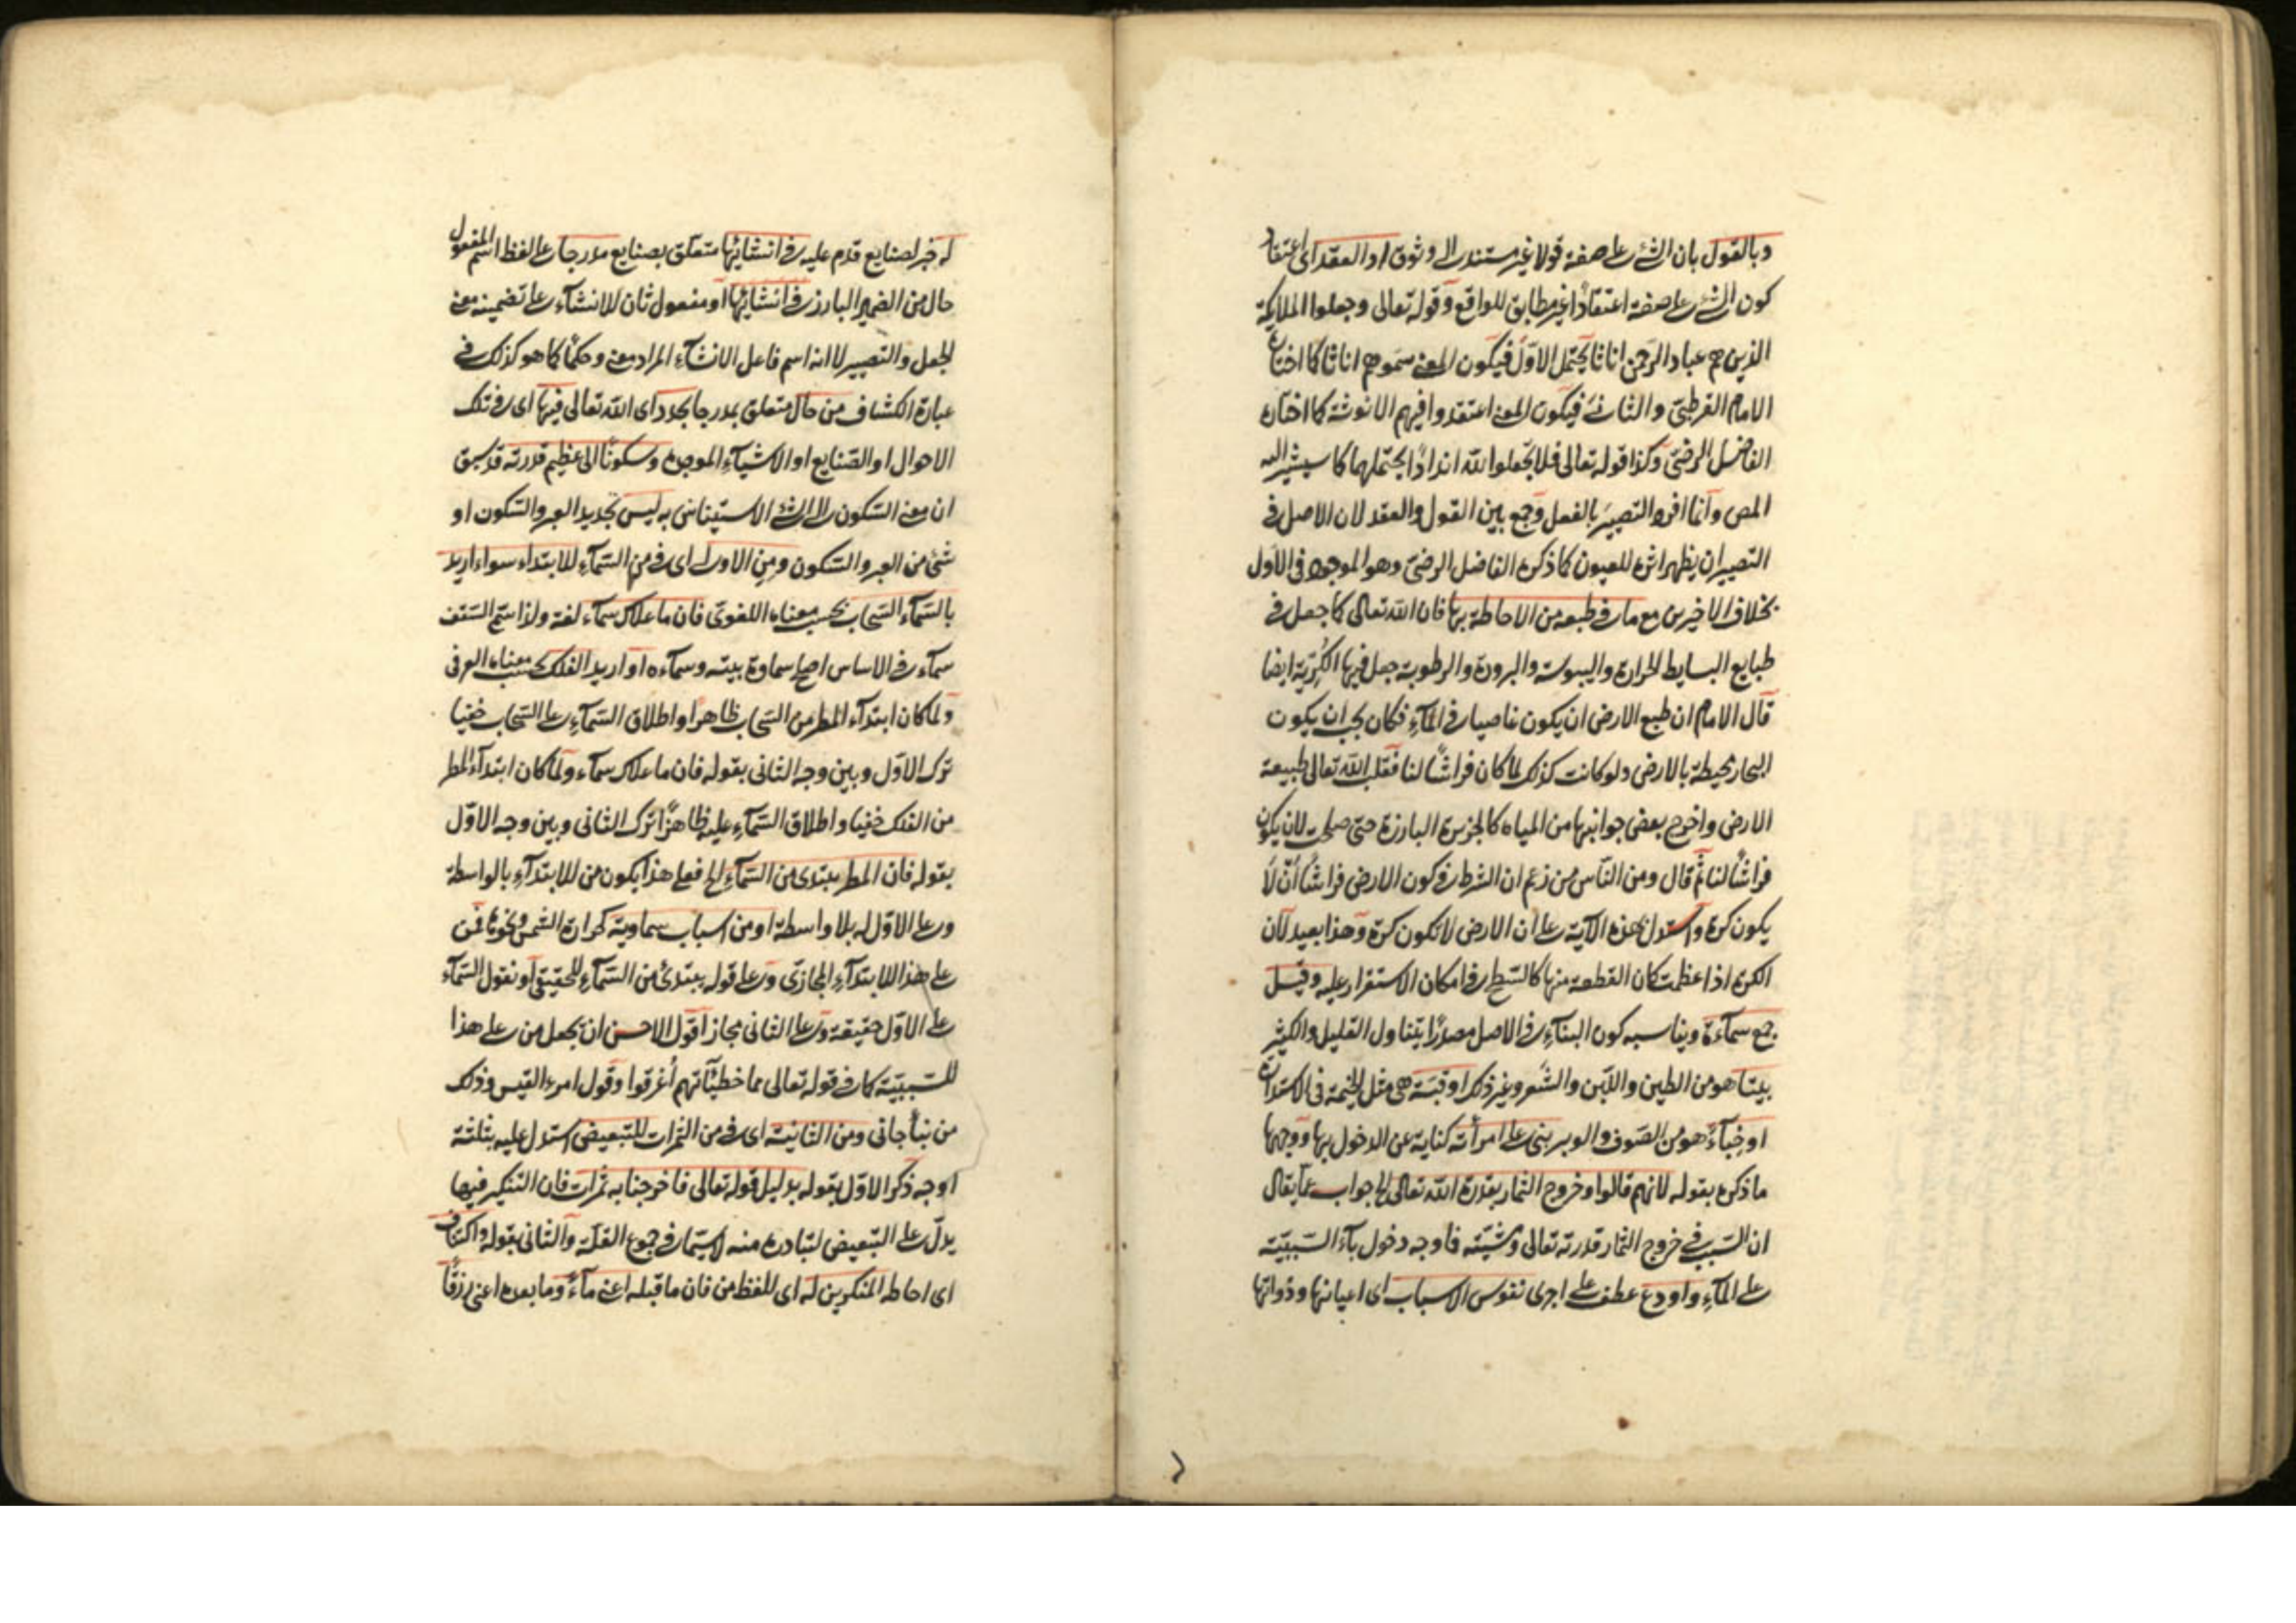 وبالقول بان الشئ على صفة قولا غير مستند الى وثوق او العقد اى اعتقاد
كون الشئ على صفة اعتقادًا غير مطابق للواقع وقوله تعالى وجعلوا الملايكة
الذين هم عباد الرحمن اناثا يحتمل الاوّل فيكون المعنى سمّوهم اناثا كما اختاره
الامام القرطبىّ والثانى فيكون المعنى اعتقدوا فيهم الانوثة كما اختاره
الفاضل الرضىّ وكذا قوله تعالى فلا تجعلوا لله اندادًا يحتملهما كما سيشير اليه
المص وانّما افرد التصيير بالفعل وجمع بين القول والعقد لان الاصل فى
التصيير ان يظهر اثره للعيون كما ذكره الفاضل الرضىّ وهو الموجود فى الاول
بخلاف الاخيرين مع ما فى طبعه من الاحاطة بها فان الله تعالى كما جعل فى
طبايع البسايط الحرارة واليبوسة والبرودة والرطوبة جعل فيها الكريّة ايضا
قال الامام ان طبع الارض ان يكون غاصيا فى المآء فكان يجب ان يكون
البحار محيطة بالارض ولو كانت كذلك لما كان فراشًا لنا فقلب الله تعالى طبيعة
الارض واخرج بعض جوانبها من المياه كالجزيرة البارزة حتى صلحت لان يكون
فراشًا لنا ثمّ قال ومن النّاس من زعم ان الشرط فى كون الارض فراشًا ان لا
يكون كرة واستدل بهذه الآية على ان الارض لا تكون كرة وهذا بعيد لان
الكرة اذا عظمت كان القطعة منها كالسّطح فى امكان الاستقرار عليه وقيل
جمع سمآءة ويناسبه كون البنآء فى الاصل مصدرًا يتناول القليل والكثير
بيتا هو من الطين واللّبن والشّعر وغير ذلك او قبّة هى مثل الخيمة فى الاستدارة
او خبآءً هو من الصّوف والوبر بنى على امرأته كناية عن الدخول بها ووجهها
ما ذكره بقوله لانهم قالوا وخروج الثمار بقدرة الله تعالى الخ جواب عمّا يقال
ان السّبب فى خروج الثمار قدرته تعالى ومشيّته فاوجه دخول بآء السّببيّة
على المآء واودع عطف على اجرى نفوس الاسباب اى اعيانها وذواتها
له خبر لصنايع قدم عليه فى انشائها متعلّق بصنايع مدرجا على لفظ اسم المفعول
حال من الضمير البارز فى انشائها او مفعول ثان للانشآء على تضمينه معنى
الجعل والتصيير لا انه اسم فاعل الانشآء المراد معنى وحكمًا كما هو كذلك فى
عبارة الكشاف من حال متعلق بمدرجا يجدد اى الله تعالى فيها اى فى تلك
الاحوال او الصّنايع او الاشيآء الموجودة وسكونًا الى عظيم قدرته قد سبق
ان معنى السّكون الى الشئ الاستيناس به ليس تجديد العبر والسّكون او
شئ من العبر والسّكون ومن الاولى اى فى من السّمآء للابتداء سواء اريد
بالسّمآء السّحاب بحسب معناه اللغوىّ فان ما علاك سمآء لغة ولذا سمّى السّقف
سمآء فى الاساس اصلح سماوة بيته وسمآءه او اريد الفلك بحسب معناه العرفى
ولما كان ابتدآء المطر من السّحاب ظاهرا واطلاق السّمآء على السّحاب خفيا
ترك الاوّل وبين وجه الثانى بقوله فان ما علاك سمآء ولمّا كان ابتدآء المطر
من الفلك خفيا واطلاق السّمآء عليه ظاهرًا ترك الثانى وبين وجه الاوّل
بقوله فان المطر يبتدى من السّمآء الخ فعلى هذا يكون من للابتدآء بالواسطة
وعلى الاوّل له بلا واسطة او من اسباب سماوية كحرارة الشمس ونحوها فمن
على هذا للابتدآء المجازىّ وعلى قوله يبتدئ من السّمآء للحقيقىّ او نقول السّمآء
على الاوّل حقيقة وعلى الثانى مجاز اقول الاحسن ان يجعل من على هذا
للسّببيّة كما فى قوله تعالى مما خطيئآتهم أُغرقوا وقول امرء القيس وذلك
من نبأ جانى ومن الثانية اى فى من الثمرات للتّبعيض استدل عليه بثلثة
اوجه ذكر الاوّل بقوله بدليل قوله تعالى فاخرجنا به ثمرات فان التنكير فيها
يدلّ على التّبعيض لتبادره منه لا سيّما فى جموع القلّة والثانى بقوله واكتناف
اى احاطه المنكرين له اى للفظ من فان ما قبله اعنى مآءً وما بعده اعنى رزقًا